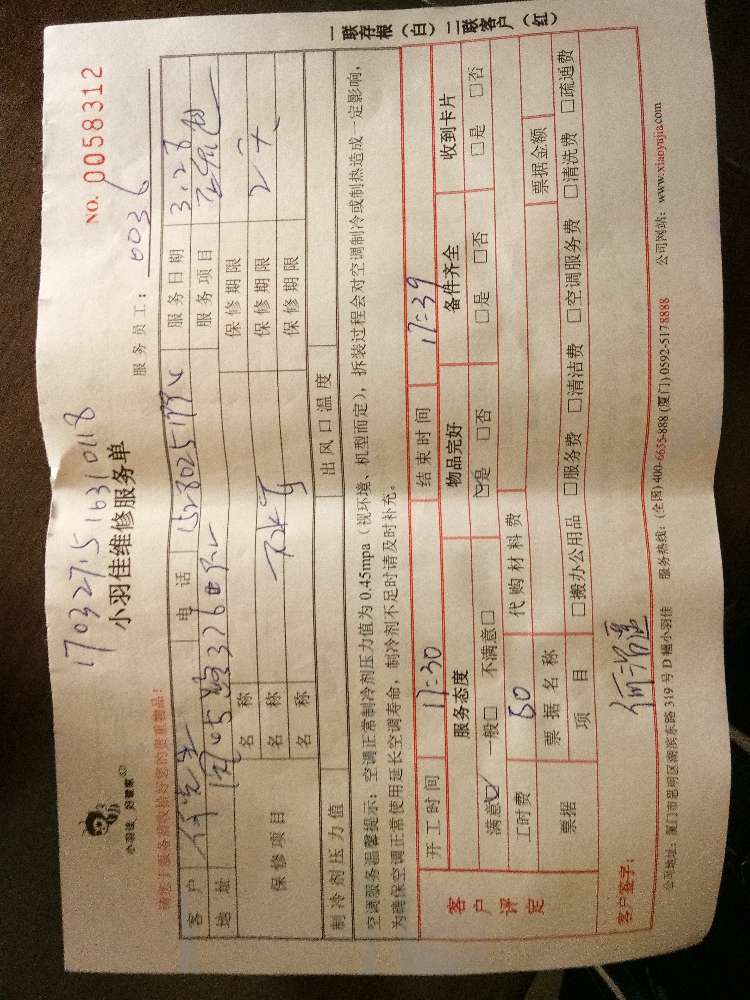 17032751631018
NO. 0058312
小羽佳 好管家
小羽佳维修服务单
服务员工： 0036
请您于服务前收拾好您的贵重物品！
客户 何先生 电话 服务日期 3.28
地址 服务项目
保修项目 名称 保修期限
名称 保修期限
名称 保修期限
制冷剂压力值 出风口温度
空调服务温馨提示：空调正常制冷剂压力值为0.45mpa（视环境、机型而定），拆装过程会对空调制冷或制热造成一定影响，
为确保空调正常使用延长空调寿命，制冷剂不足时请及时补充。
客户评定
开工时间 17:30 结束时间 17:39
服务态度 物品完好 备件齐全 收到卡片
满意☑ 一般□ 不满意□ ☑是 □否 □是 □否 □是 □否
工时费 60 代购材料费
票据 票据名称 票据金额
项目 □搬办公用品 □服务费 □清洁费 □空调服务费 □清洗费 □疏通费
客户签字：
公司地址：厦门市思明区湖滨东路319号D幢小羽佳 服务热线：(全国)400-6655-888 (厦门)0592-5178888 公司网站：www.xiaoyujia.com
一联存根（白）二联客户（红）